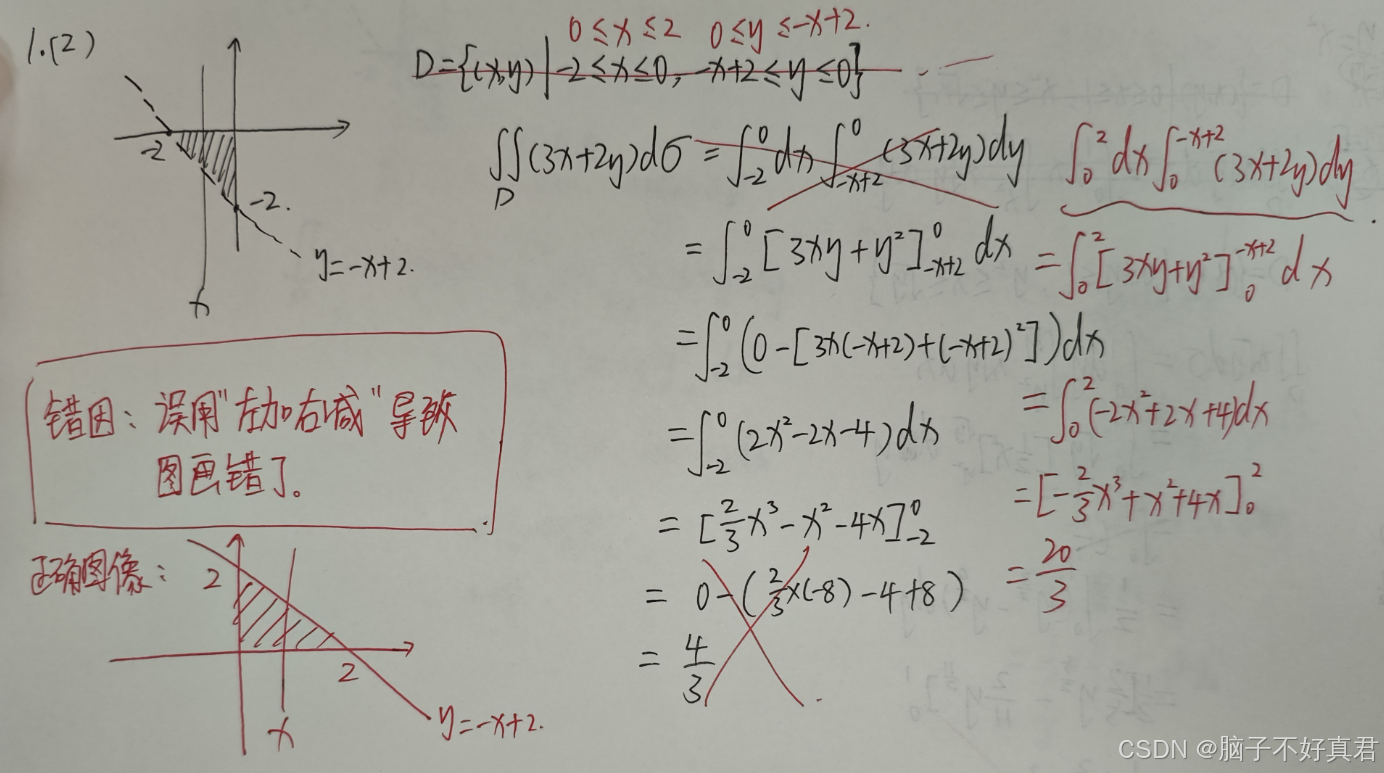 1.(2)
0≤x≤2 0≤y≤-x+2.
D={(x,y)|-2≤x≤0, -x+2≤y≤0}
-2
-2.
y=-x+2.
x
∬_D(3x+2y)dσ=∫_{-2}^{0}dx∫_{-x+2}^{0}(3x+2y)dy ∫_{0}^{2}dx∫_{0}^{-x+2}(3x+2y)dy
=∫_{-2}^{0}[3xy+y²]_{-x+2}^{0}dx =∫_{0}^{2}[3xy+y²]_{0}^{-x+2}dx
=∫_{-2}^{0}(0-[3x(-x+2)+(-x+2)²])dx
=∫_{-2}^{0}(2x²-2x-4)dx =∫_{0}^{2}(-2x²+2x+4)dx
=[2/3x³-x²-4x]_{-2}^{0} =[-2/3x³+x²+4x]_{0}^{2}
= 0-(2/3×(-8)-4+8) =20/3
= 4/3
错因：误用"左加右减"导致
图画错了。
正确图像：
2
2
x
y=-x+2.
CSDN @脑子不好真君